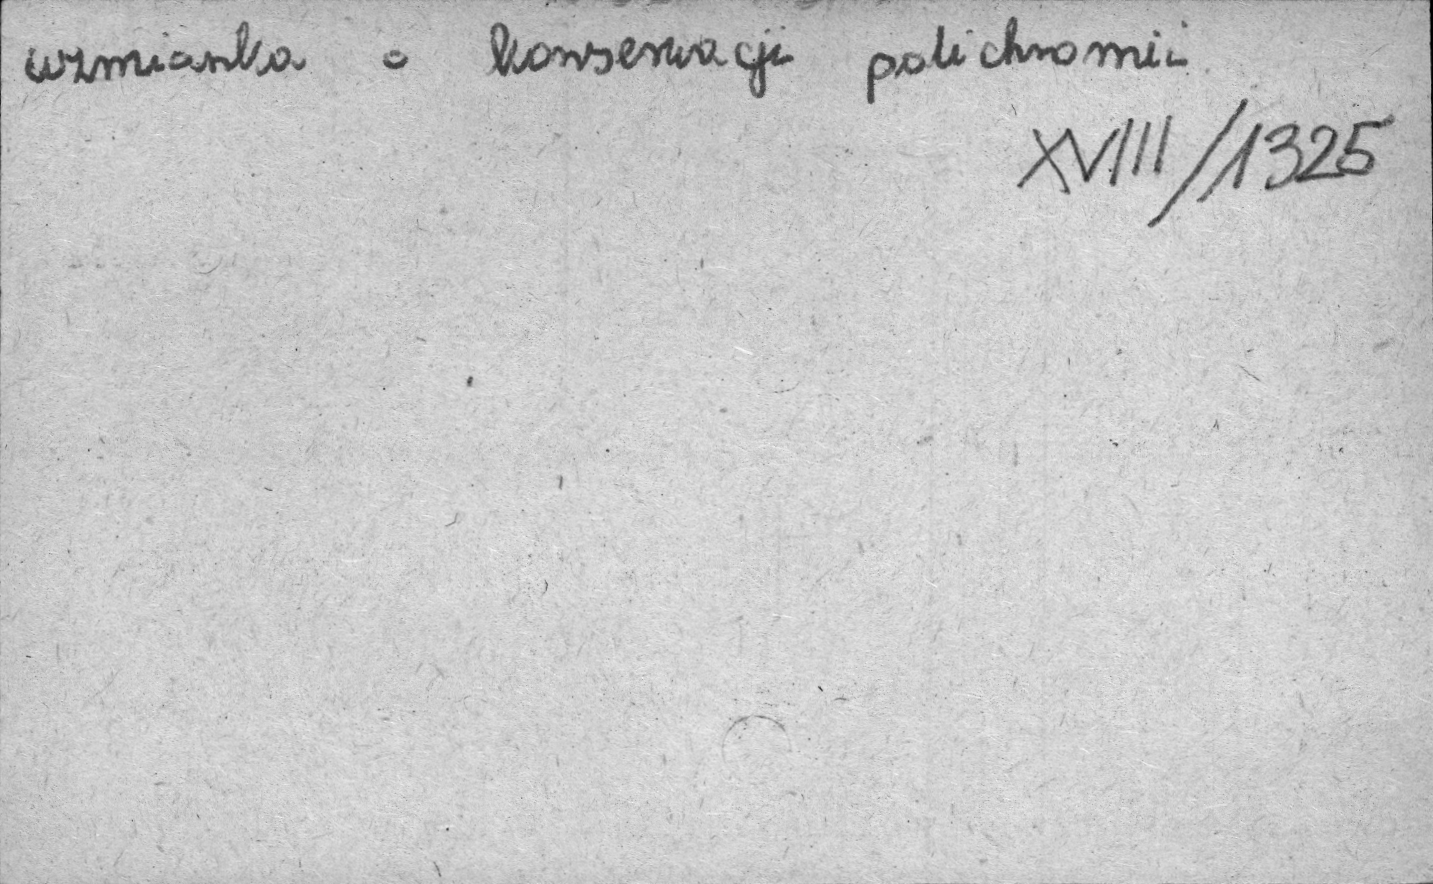 wzmianka o konserwacji polichromii
XVIII/1325